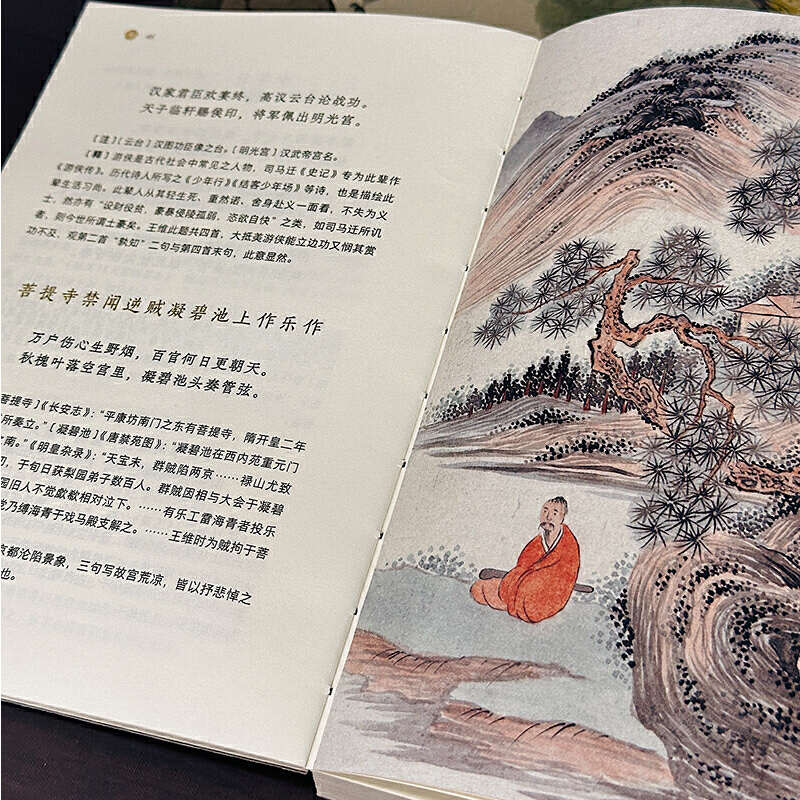 汉家君臣欢宴终，高议云台论战功。
天子临轩赐侯印，将军佩出明光宫。
〔注〕〔云台〕汉图功臣像之台。〔明光宫〕汉武帝宫名。
〔释〕游侠是古代社会中常见之人物，司马迁《史记》专为此辈作
《游侠传》。历代诗人所写之《少年行》《结客少年场》等诗，也是描绘此
辈生活习尚。此辈人从其轻生死、重然诺、舍身赴义一面看，不失为义
士，然亦有“设财役贫，豪暴侵陵孤弱，恣欲自快”之类，如司马迁所讥
者，则今世所谓土豪矣。王维此题共四首，大抵美游侠能立边功又悯其赏
功不及，观第二首“孰知”二句与第四首末句，此意显然。
菩提寺禁闻逆贼凝碧池上作乐作
万户伤心生野烟，百官何日更朝天。
秋槐叶落空宫里，凝碧池头奏管弦。
菩提寺〕《长安志》：“平康坊南门之东有菩提寺，隋开皇二年
所奏立。”〔凝碧池〕《唐禁苑图》：“凝碧池在西内苑重元门
南。”《明皇杂录》：“天宝末，群贼陷两京……禄山尤致
，于旬日获梨园弟子数百人。群贼因相与大会于凝碧
园旧人不觉歔欷相对泣下。……有乐工雷海青者投乐
乃缚海青于戏马殿支解之。……王维时为贼拘于菩
京都沦陷景象，三句写故宫荒凉，皆以抒悲悼之
也。